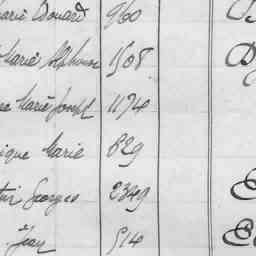 Marie Edouard 960
Marie Alphonse 1508
Marie Joseph 1174
ique Marie 829
Georges 2349
Jean 514